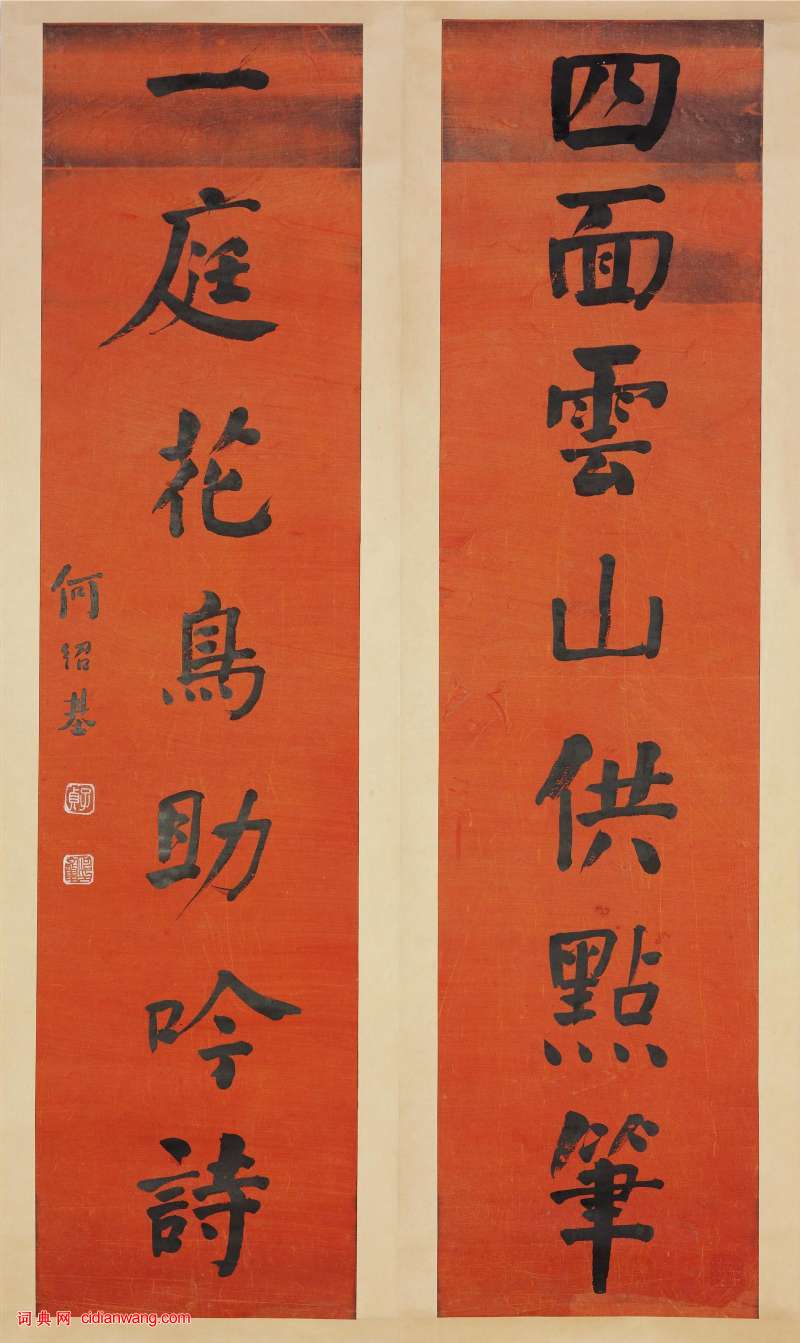 四面雲山供點筆
一庭花鳥助吟詩
何紹基
子貞
词典网 cidianwang.com